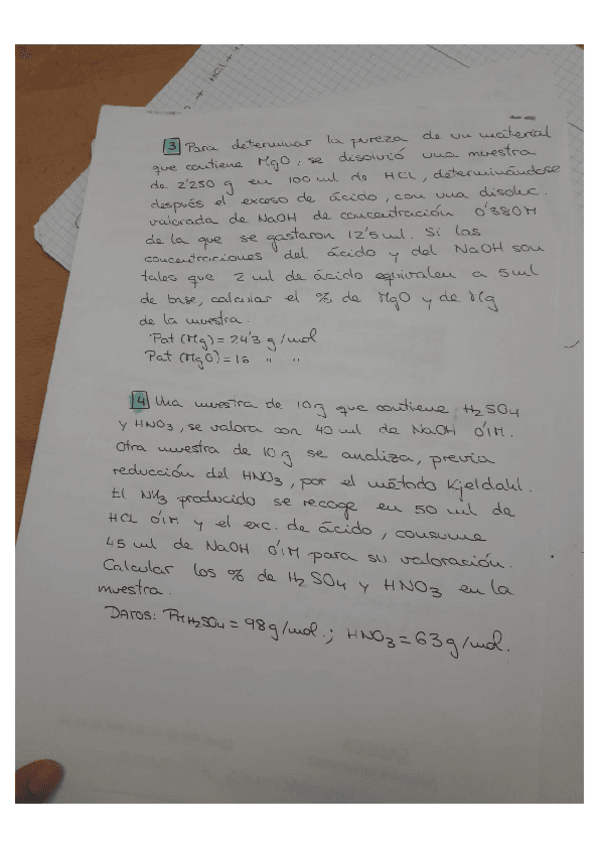 + HCl + H
3 Para determinar la pureza de un material
que contiene MgO, se disolvió una muestra
de 2'250 g en 100 ml de HCl, determinándose
después el exceso de ácido, con una disoluc.
valorada de NaOH de concentración 0'880M
de la que se gastaron 12'5 ml. Si las
concentraciones del ácido y del NaOH son
tales que 2 ml de ácido equivalen a 5ml
de base, calcular el % de MgO y de Mg
de la muestra.
Pat (Mg) = 24'3 g/mol
Pat (MgO) = 16 " "
4 Una muestra de 10g que contiene H2SO4
y HNO3, se valora con 40 ml de NaOH 0'1M.
Otra muestra de 10 g se analiza, previa
reducción del HNO3, por el método Kjeldahl.
El NH3 producido se recoge en 50 ml de
HCL 0'1M. y el exc. de ácido, consume
45 ml de NaOH 0'1M para su valoración.
Calcular los % de H2SO4 y HNO3 en la
muestra.
DATOS: PMH2SO4 = 98g/mol.; HNO3 = 63g/mol.